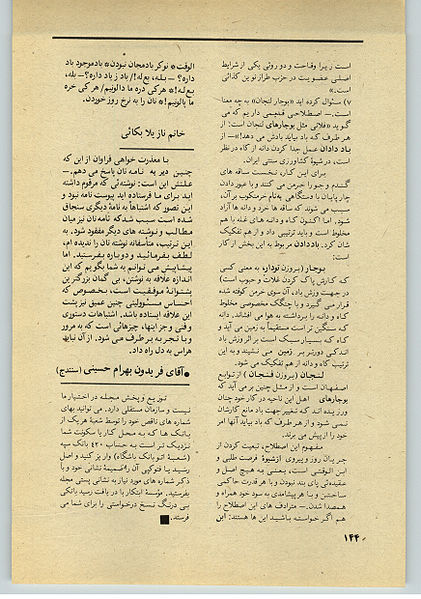 است زیرا وقاحت و دو روئی یکی از شرایط
اصلی عضویت در حزب طراز نوین کذائی
است.
۷) سئوال کرده اید «بوجار لنجان» به چه معنا
است. ــ اصطلاحی قدیمی داریم که می
گوید «فلانی مثل بوجارهای لنجان است: از
هر طرف که باد بیاید بادش می دهد!» ــ از
باد دادن عمل جدا کردن دانه از کاه در نظر
است، در شیوهٔ کشاورزی سنتی ایران.
برای این کار، نخست ساقه های
گندم و جو را خرمن می کنند و با عبور دادن
چارپایان با دستگاهی به‌نام خرمنکوب بر آن،
سبب می شوند که ساقه ها خرد و دانه ها آزاد
شود. اما اکنون کاه و دانه های غله با هم
مخلوط است و باید ترتیبی داد و از هم تفکیک
شان کرد. باد دادن مربوط به این بخش از کار
است:
بوجار (بروزن نودار، به معنی کسی
که کارش پاک کردن غلات و حبوب است)
در جهت وزش باد، آن سوی خرمن کوفته شده
قرار می گیرد و با چنگک مخصوصی مخلوط
کاه و دانه را برداشته به هوا می افشاند. دانه
که سنگین تر است مستقیماً به زمین می آید و
کاه که بسیار سبک است بر اثر وزش باد
اندکی دورتر بر زمین می نشیند و به این
ترتیب کاه و دانه از هم تفکیک می شود.
لنجان (بروزن فنجان) از توابع
اصفهان است و از مثل چنین بر می آید که
بوجارهای اهل این ناحیه در کار خود چنان
ورزیده اند که تغییر جهت باد مانع کارشان
نمی شود و از هر طرف که باد بیاید آنها امر
خود را از پیش می برند.
مفهوم این اصطلاح، تبعیت کردن از
جریان روز و پیروی از شیوهٔ فرصت طلبی و
ابن الوقتی است، یعنی به هیچ اصل و
عقیده‌ئی پای بند نبودن و با هر قدرت حاکمی
ساختن و با هر پیشامدی به سود خود همراه و
همصدا شدن. ــ مترادف های این اصطلاح را
هم اگر خواسته باشید این ها هستند: ابن
الوقت * نوکر بادمجان نبودن * باد موجود باد
داره؟ ــ بله، بع‌له!/ باد ز یاد داره؟ ــ بله،
بع‌له! * هر کی دره ما دالونیم/ هر کی خره
ما پالونیم! * نان را به نرخ روز خوردن.
خانم نازیلا بکائی
با معذرت خواهی فراوان از این که
چنین دیر به نامه تان پاسخ می دهم. ــ
علتش این است: نوشته‌ئی که مرقوم داشته
اید برای ما فرستاده اید پیوست نامه نبود و
این تصور که اشتباهاً به نامهٔ دیگری سنجاق
شده است سبب شد که نامه تان نیز میان
مطالب و نوشته های دیگر مفقود شود. به
این ترتیب، متأسفانه نوشته تان را ندیده ام.
لطف بفرمائید و دوباره بفرستید. اما
پیشاپیش می توانم به شما بگویم که این
اندازه علاقه به نوشتن، بی گمان بزرگترین
پشتوانهٔ موفقیت است، بخصوص که
احساس مسئولیتی چنین عمیق نیز پشت
این علاقه ایستاده باشد. اشتباهات دستوری
و فنی و جز اینها، چیزهائی است که به مرور
و با تجربه برطرف می شود. از آن نباید
هراس به دل راه داد.
● آقای فریدون بهرام حسینی (سنندج)
توزیع و پخش مجله در اختیار ما
نیست و سازمان مستقلی دارد. می توانید بهای
شماره های ناقص خود را توسط شعبهٔ هر یک از
بانک ها که به محل کار یا سکونت شما
نزدیک تر است به حساب ۴۲۰ بانک سپه
(شعبهٔ اتو بانک باشگاه) واریز کنید و اصل
رسید یا فتوکپی آن را ضمیمهٔ نشانی خود و با
ذکر شماره های مورد نیاز به نشانی پستی مجله
بفرستید. مؤسسهٔ ابتکار با دریافت رسید بانکی
بی درنگ نسخ درخواستی را برای شما می
فرستد. ■
۱۴۴